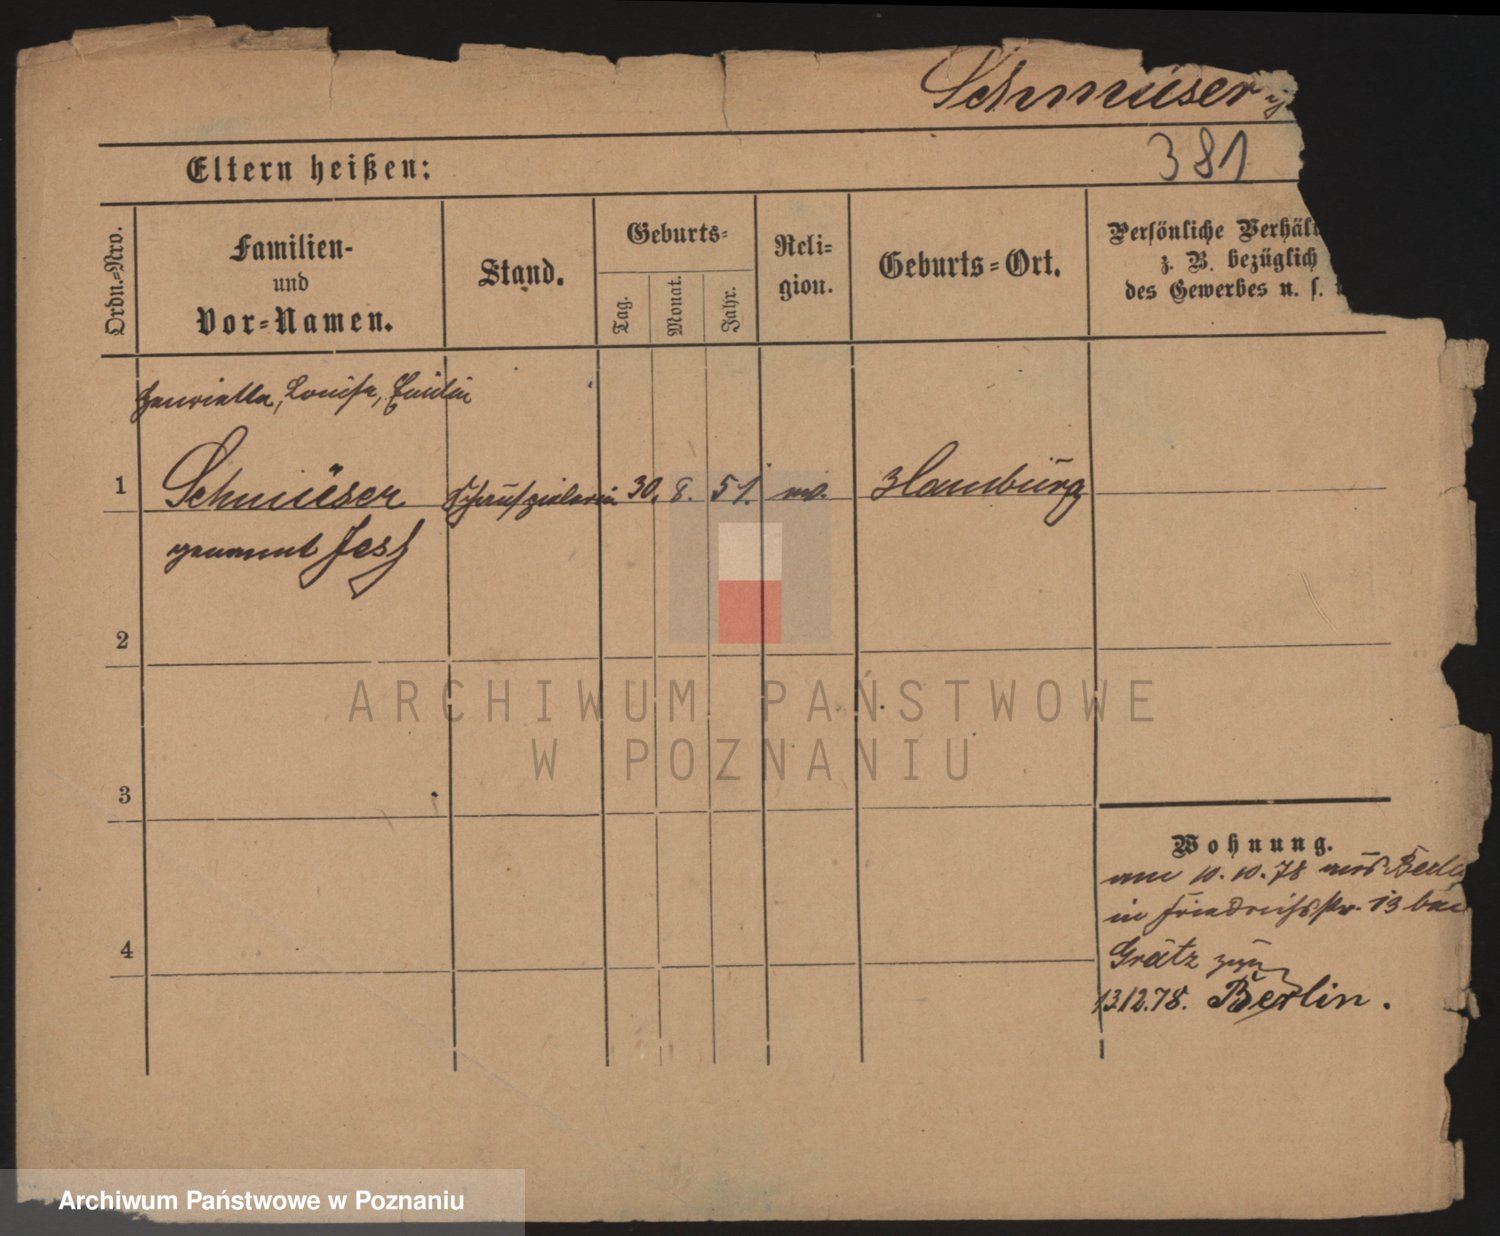 Schmüser
381
Eltern heißen:
Ordn.-Nro.
Familien-
und
Vor-Namen.
Stand.
Geburts-
Tag.
Monat.
Jahr.
Reli-
gion.
Geburts-Ort.
Persönliche Verhält
z. B. bezüglich
des Gewerbes u. s.
Henriette, Louise, Emilie
1 Schmüser Schauspielerin 30. 8. 51. ev. Hamburg
genannt Jess
2
3
4
Wohnung.
am 10.10.78 aus Berlin
in Friedrichsstr. 13 bei
Grätz
13.12.78. Berlin.
ARCHIWUM PAŃSTWOWE
W POZNANIU
Archiwum Państwowe w Poznaniu